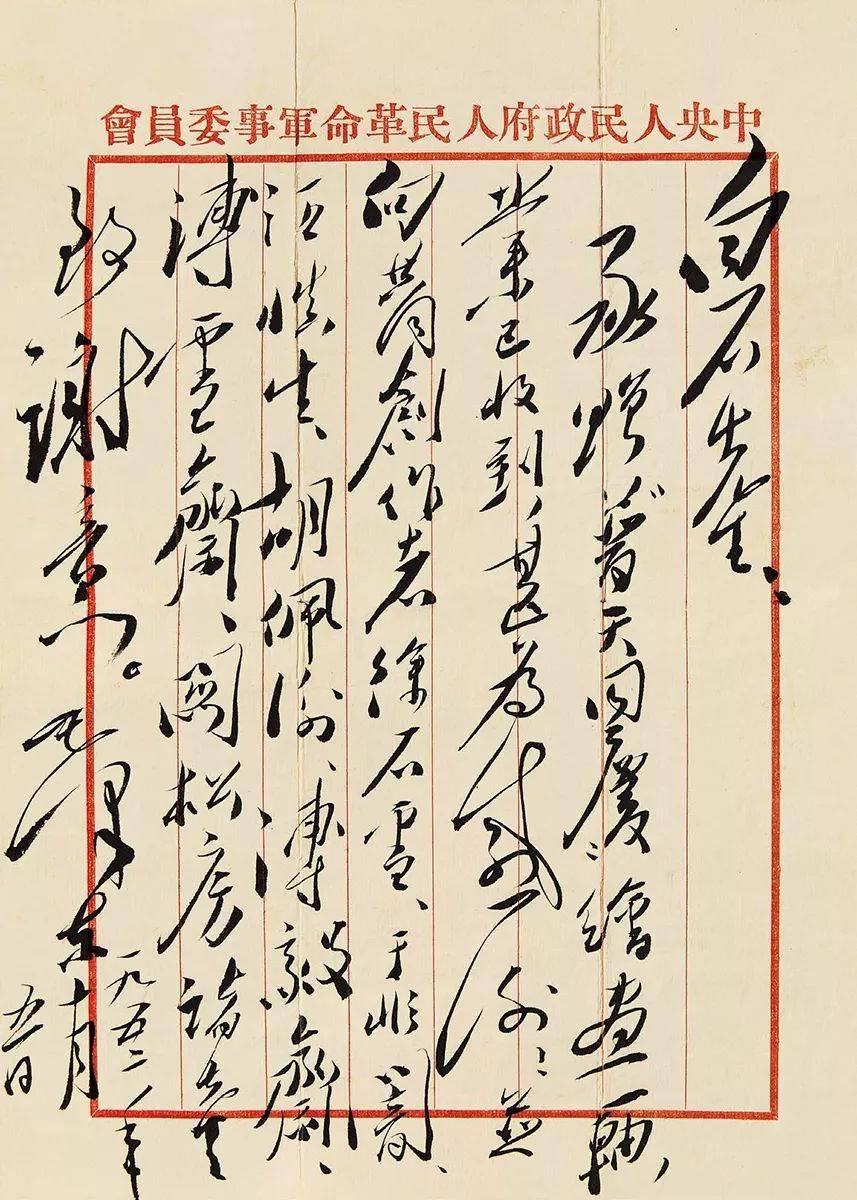 中央人民政府人民革命軍事委員會
白石先生：
承贈“普天同慶”繪畫一軸，
業已收到，甚為感謝；並
向共同創作者徐石雪、于非闇、
汪慎生、胡佩衡、溥毅齋、
溥雪齋、關松房諸先生
致謝意。毛澤東
一九五二年
十月
五日